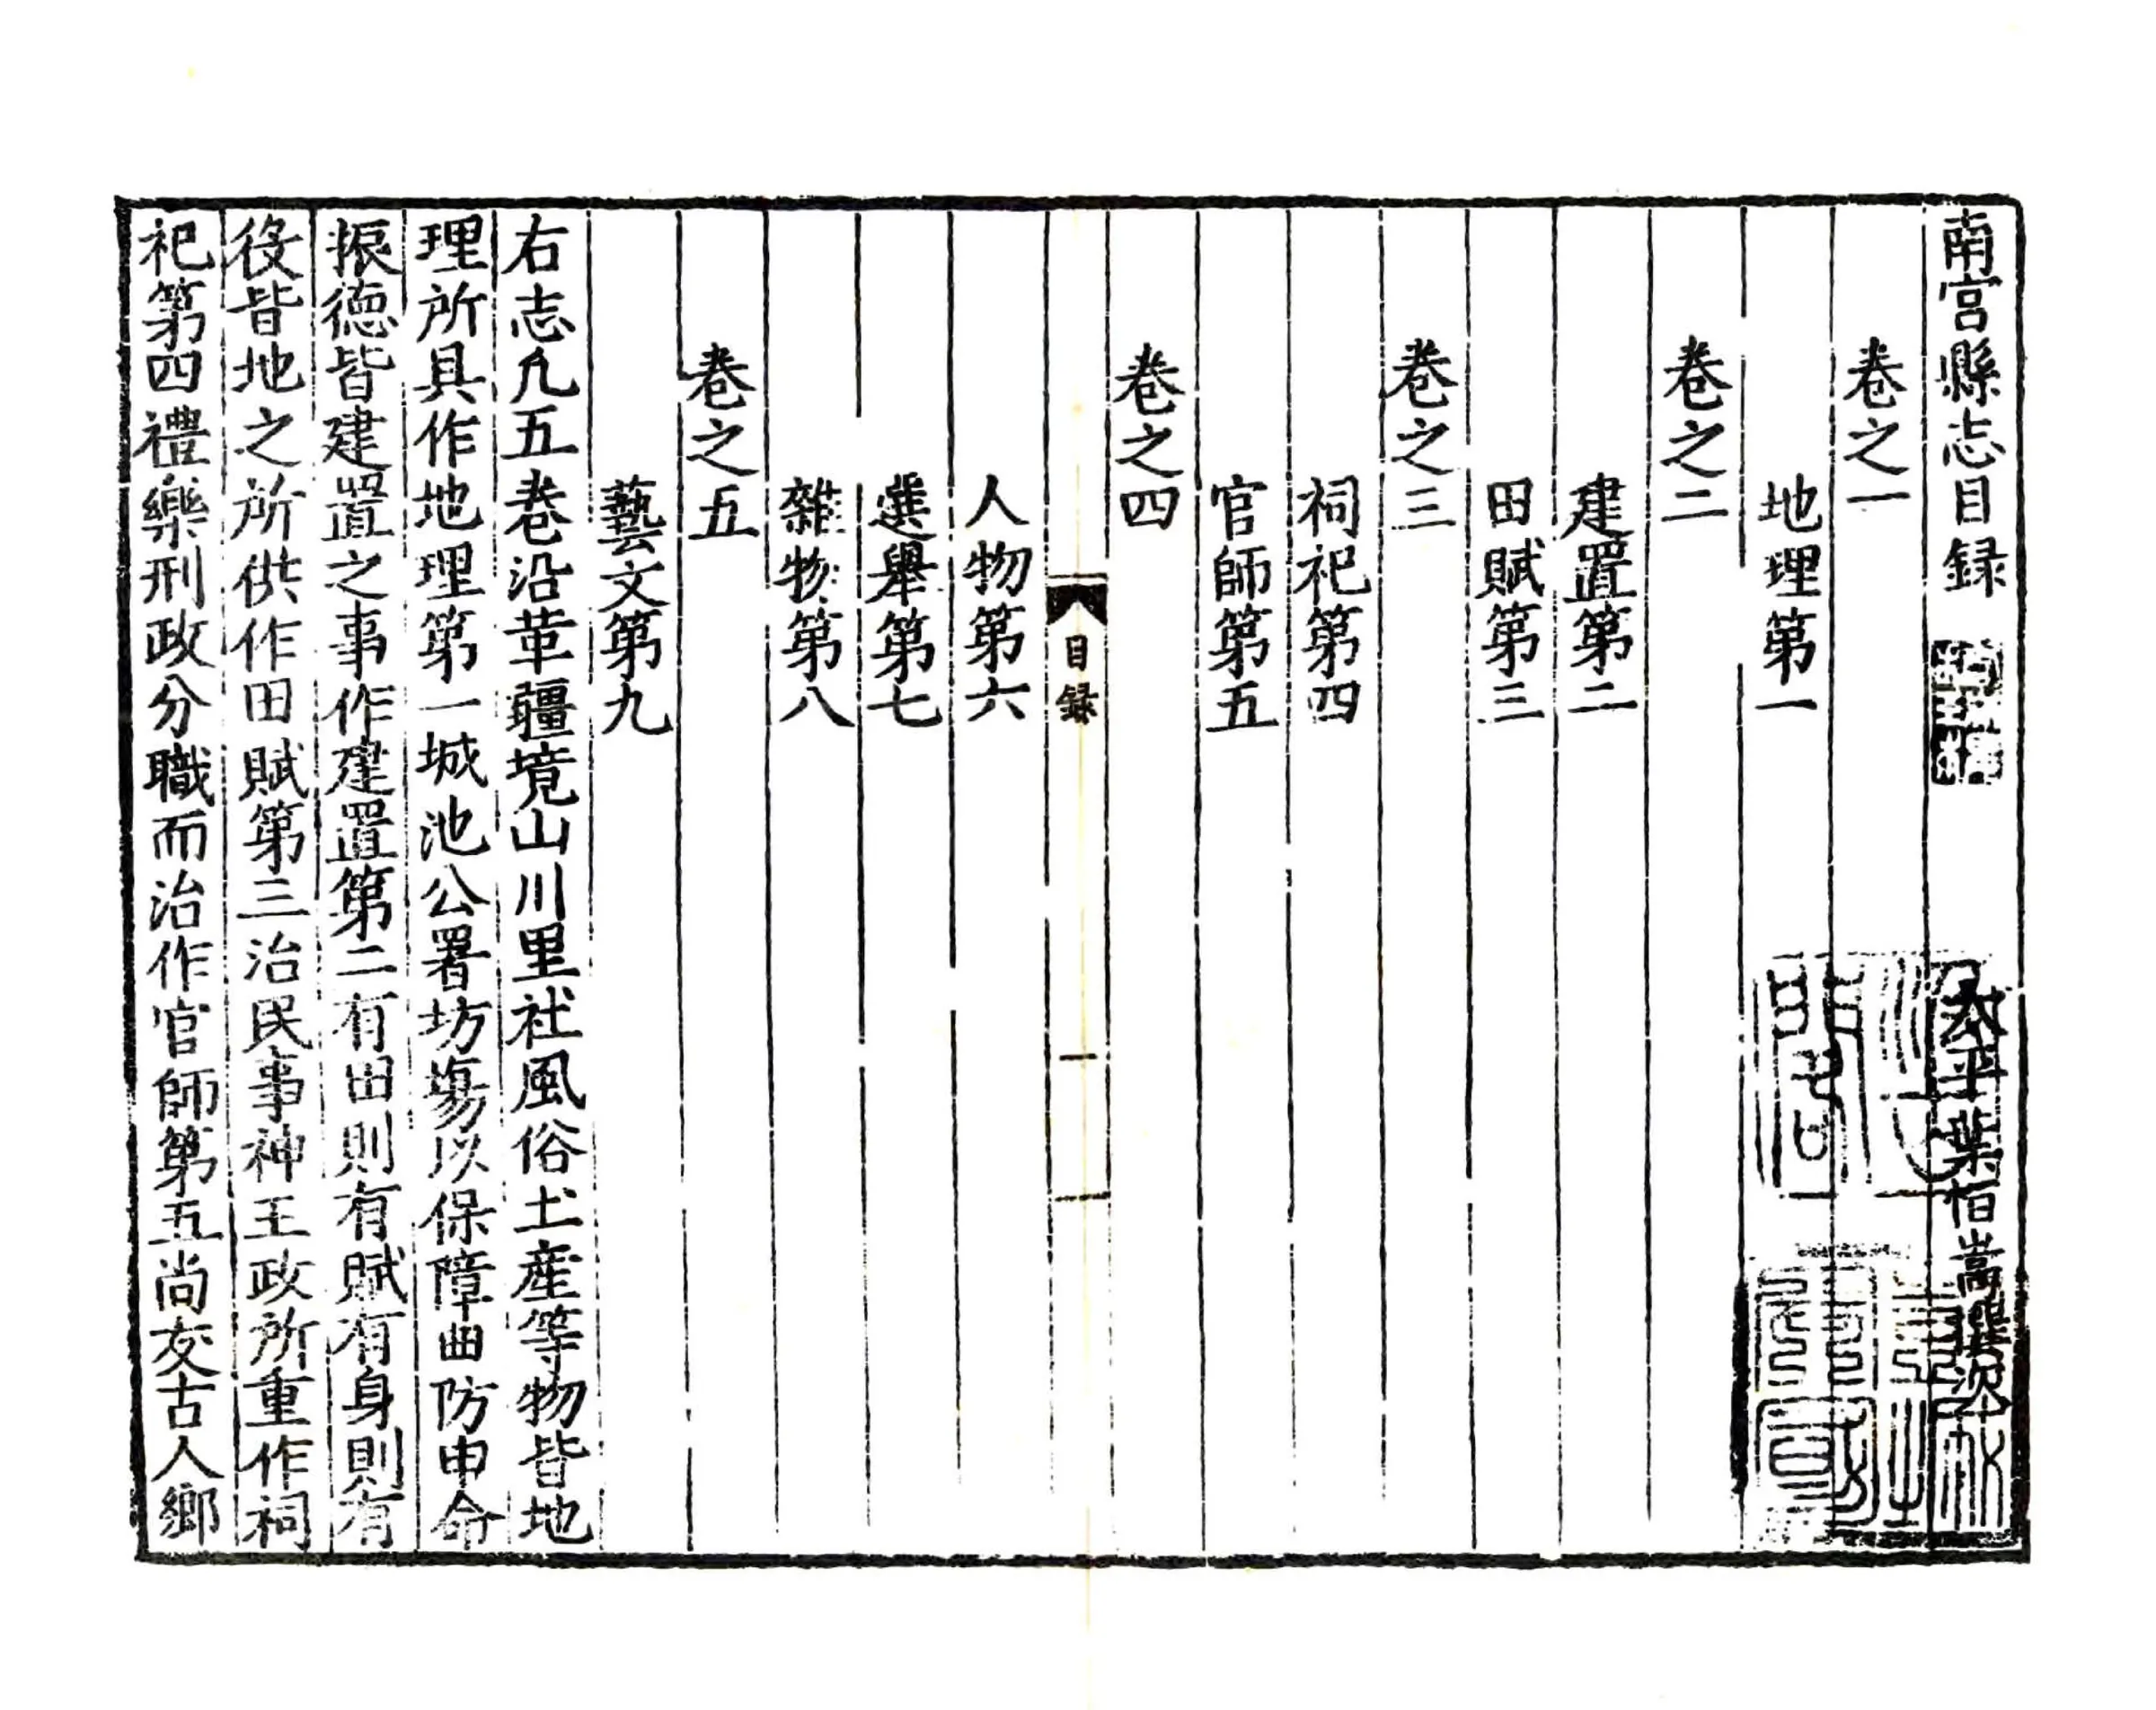 南宮縣志目録
太平葉恒嵩撰次
卷之一
地理第一
卷之二
建置第二
田賦第三
卷之三
祠祀第四
官師第五
卷之四
目録
一
人物第六
選舉第七
雜物第八
卷之五
藝文第九
右志凡五卷沿革疆境山川里社風俗土産等物皆地
理所具作地理第一城池公署坊塲以保障曲防申命
振德皆建置之事作建置第二有田則有賦有身則有
役皆地之所供作田賦第三治民事神王政所重作祠
祀第四禮樂刑政分職而治作官師第五尚友古人鄉